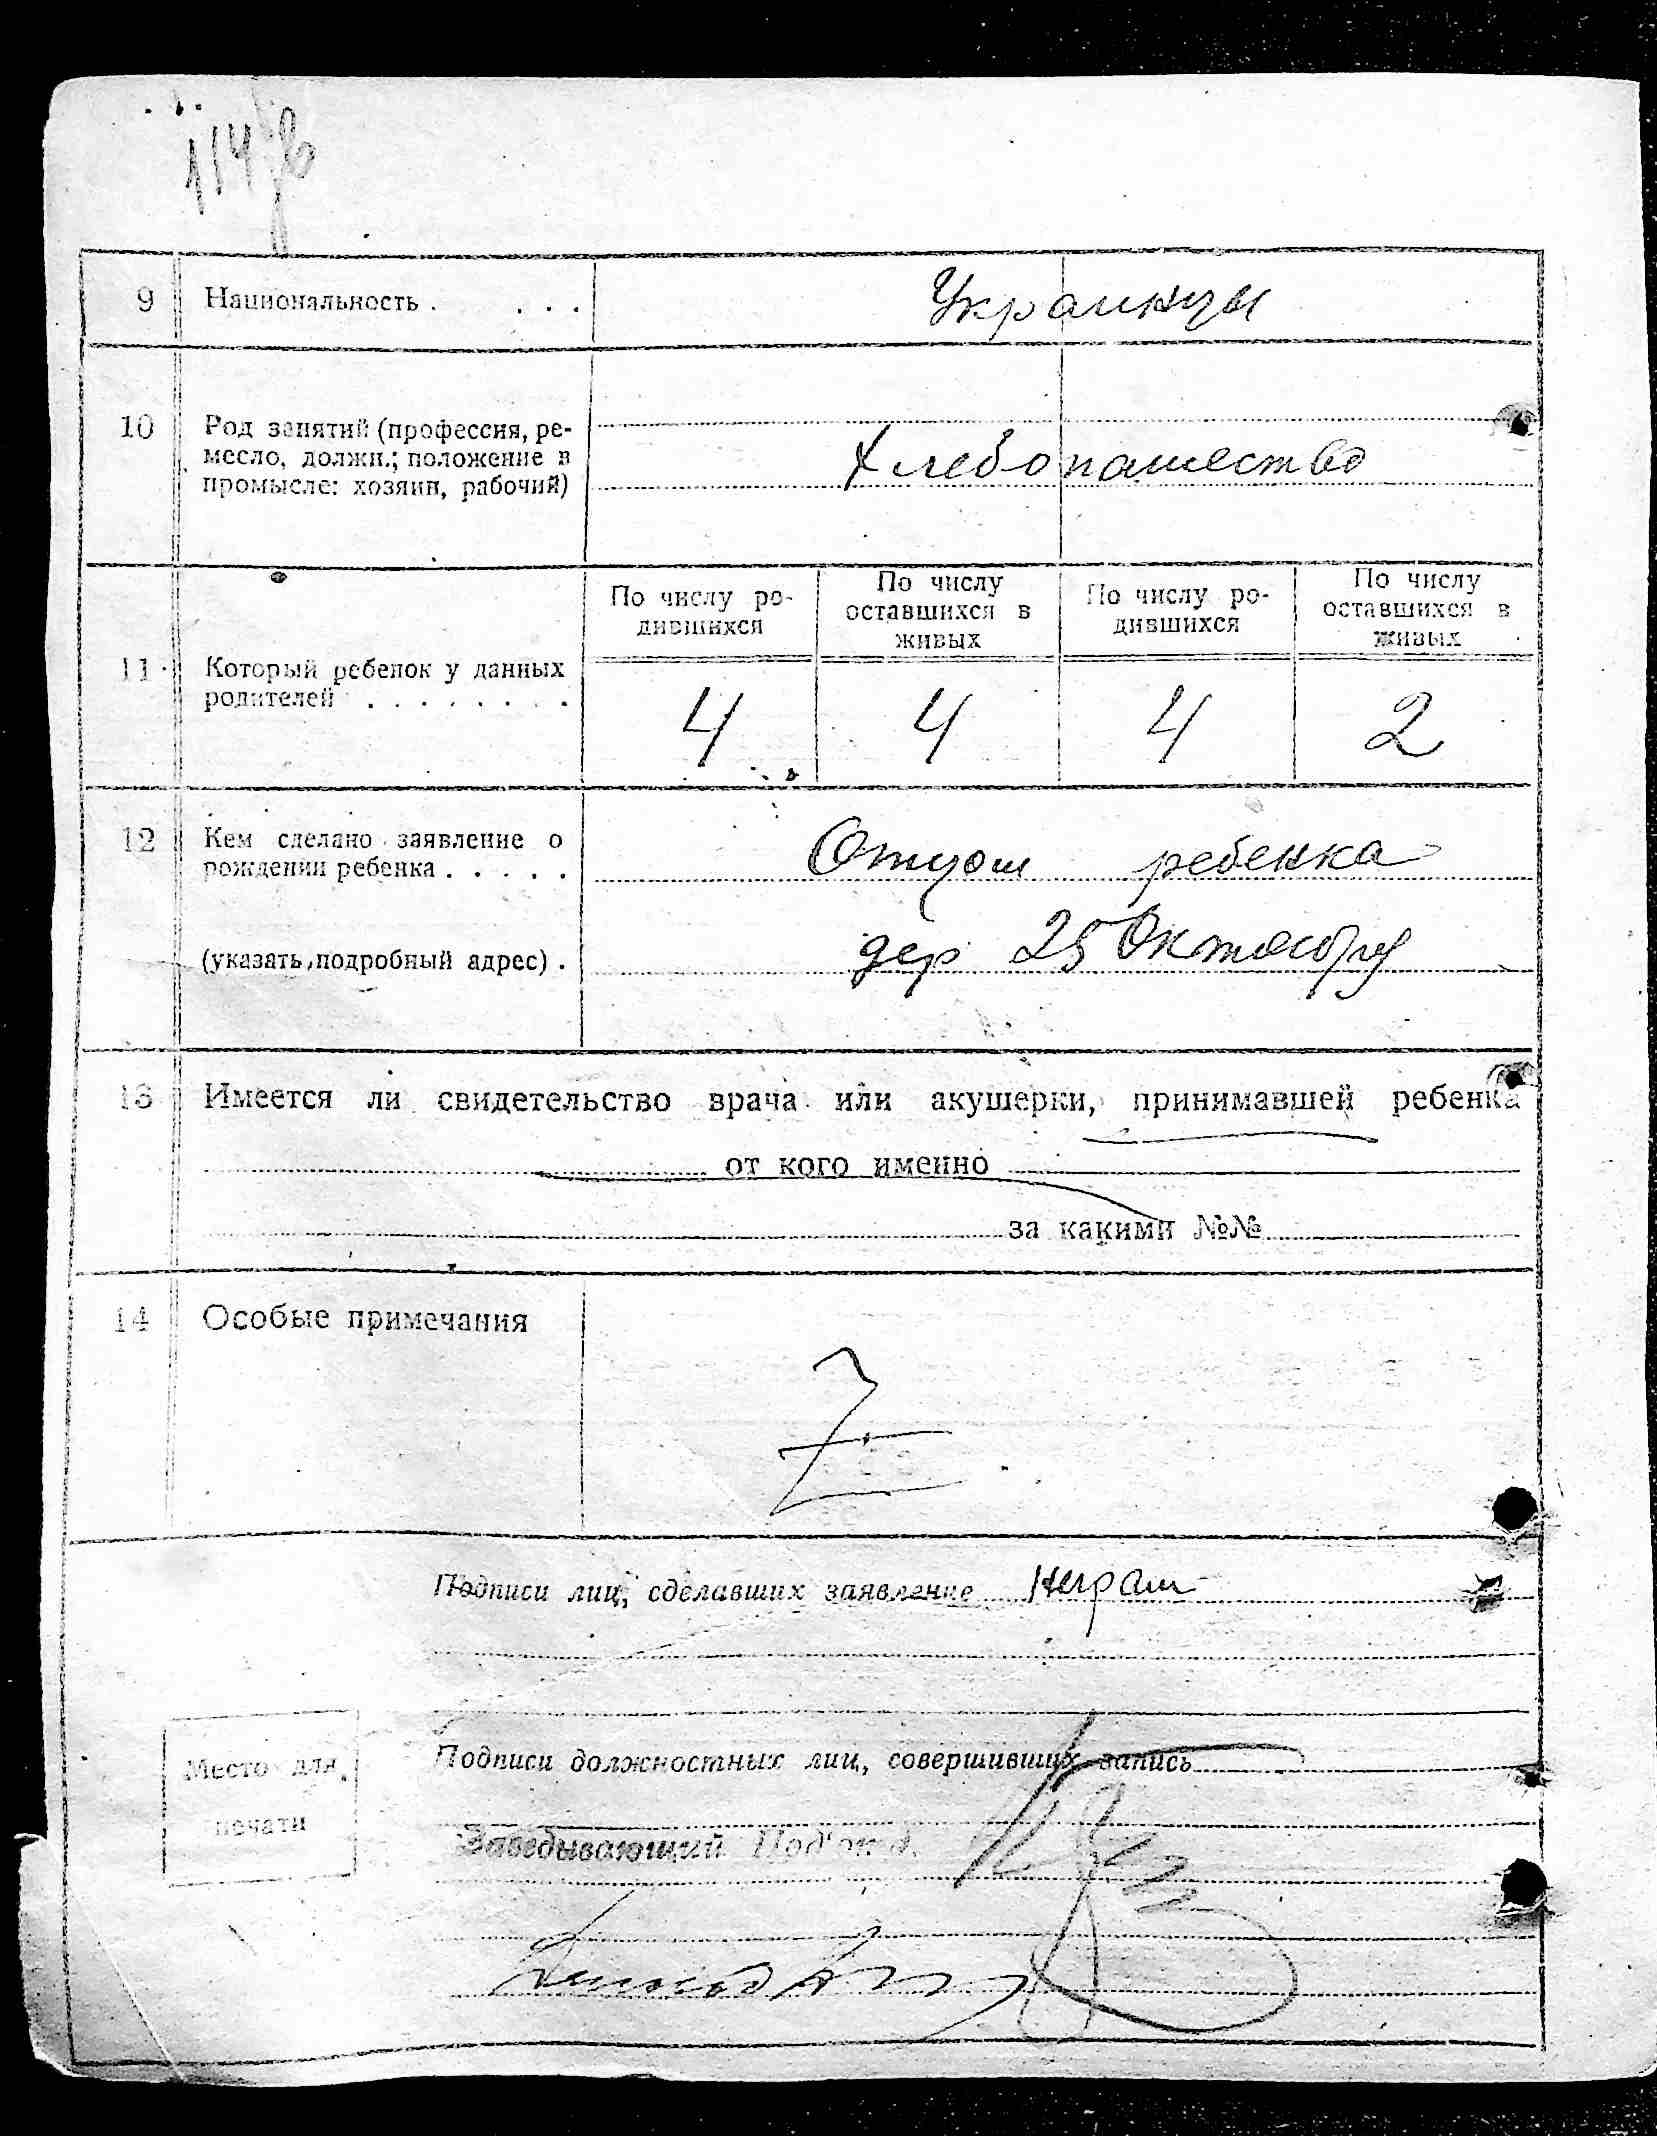 114
9 Национальность . . . . Украинцы
10 Род занятий (профессия, ре-
месло, должн.; положение в
промысле: хозяин, рабочий)
Хлебопашество
По числу ро-
дившихся
По числу
оставшихся в
живых
По числу ро-
дившихся
По числу
оставшихся в
живых
11 Который ребенок у данных
родителей . . . . . . . .
4 4 4 2
12 Кем сделано заявление о
рождении ребенка . . . . .
Отцом ребенка
(указать подробный адрес) .
дер 25 Октября
13 Имеется ли свидетельство врача или акушерки, принимавшей ребенка
от кого именно
за какими №№
14 Особые примечания
Подписи лиц, сделавших заявление Неграм
Место для
печати
Подписи должностных лиц, совершивших запись
Заведывающий